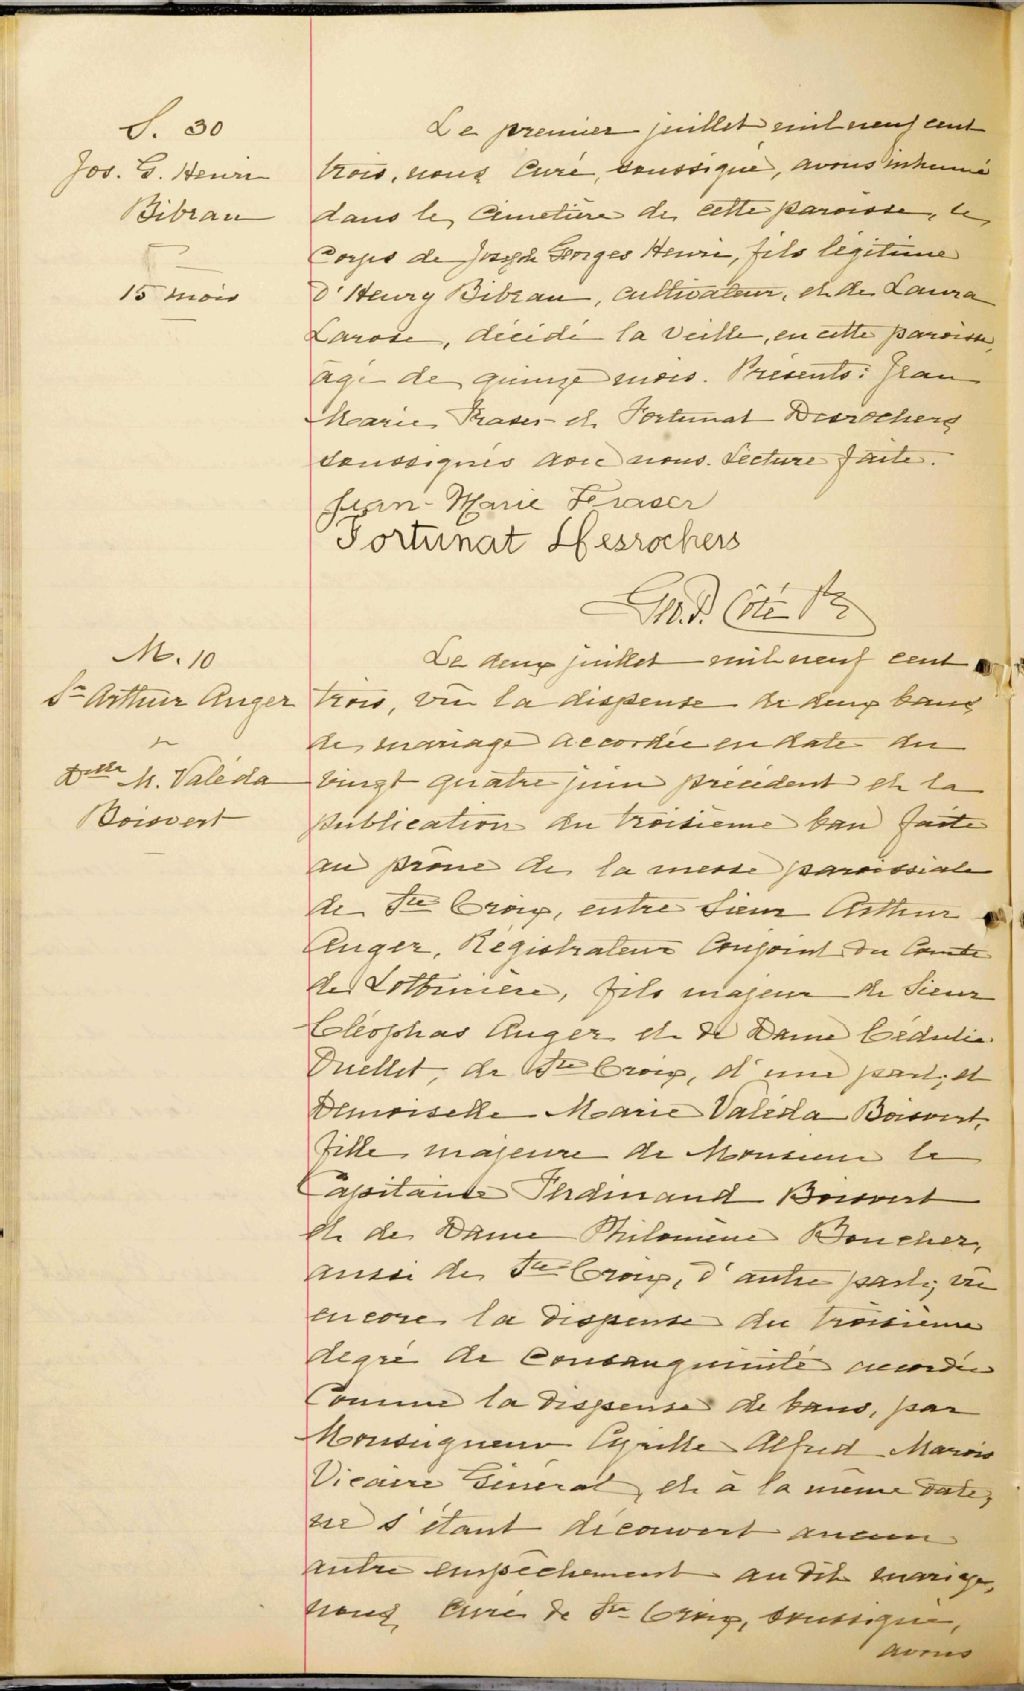 S. 30
Jos. G. Henri
Bibeau
15 mois
Le premier juillet mil neuf cent
trois, nous curé, soussigné, avons inhumé
dans le cimetière de cette paroisse, le
corps de Joseph Georges Henri, fils légitime
d'Henry Bibeau, cultivateur, et de Laura
Larose, décédé la veille, en cette paroisse,
âgé de quinze mois. Présents: Jean
Marie Fraser et Fortunat Desrochers
soussignés avec nous. Lecture faite.
Jean-Marie Fraser
Fortunat Desrochers
Geo. P. Côté Ptre
M. 10
Sr Arthur Anger
&
Delle M. Valéda
Boisvert
Le deux juillet mil neuf cent
trois, vû la dispense de deux bans
de mariage accordée en date du
vingt quatre juin précédent et la
publication du troisième ban faite
au prône de la messe paroissiale
de Ste Croix, entre Sieur Arthur
Anger, Régistrateur Conjoint du Comté
de Lotbinière, fils majeur de Sieur
Cléophas Anger et de Dame Cédulie
Ouellet, de Ste Croix, d'une part; et
Demoiselle Marie Valéda Boisvert,
fille majeure de Monsieur le
Capitaine Ferdinand Boisvert
et de Dame Philomène Boucher,
aussi de Ste Croix, d'autre part; vû
encore la dispense du troisième
degré de consanguinité accordée
comme la dispense de bans, par
Monseigneur Cyrille Alfred Marois
Vicaire Général, et à la même date,
ne s'étant découvert aucun
autre empêchement au dit mariage,
nous, curé de Ste Croix, soussigné,
avons